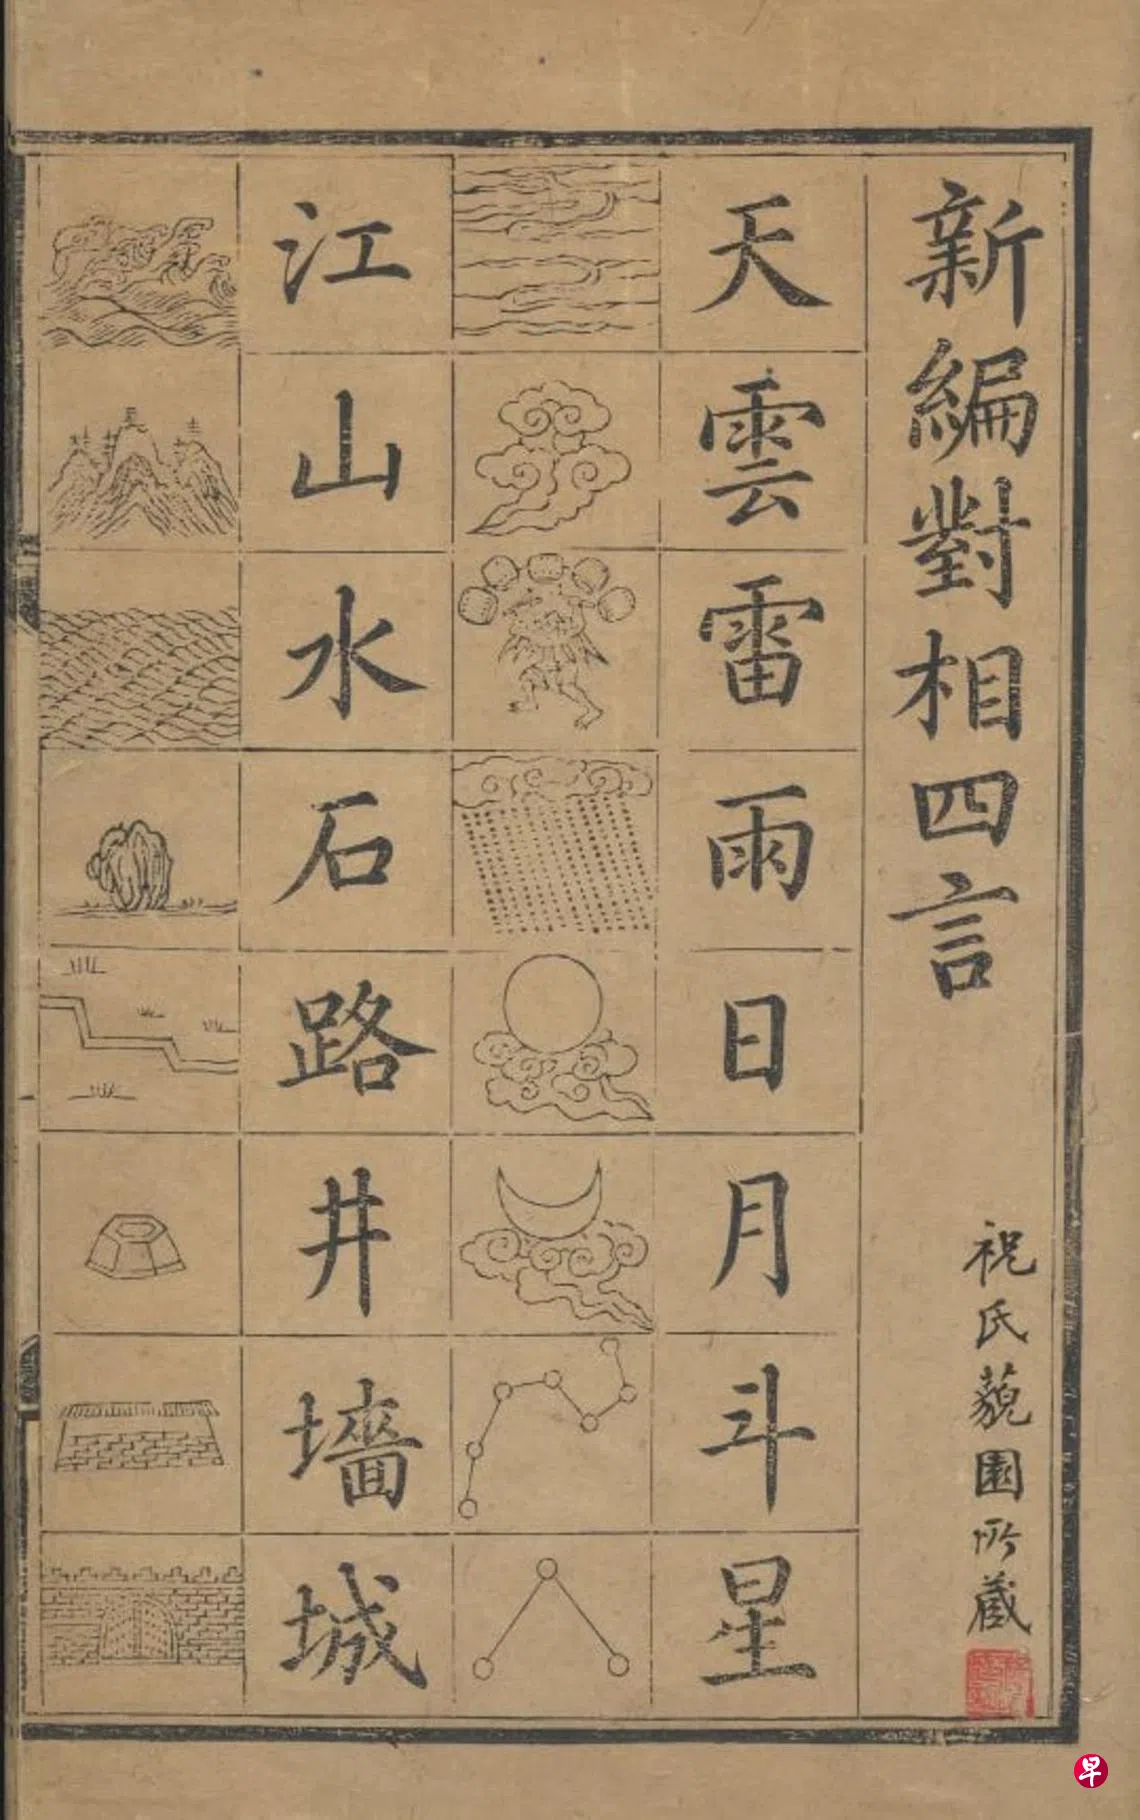 新編對相四言
祝氏藐園所藏
天雲雷雨日月斗星
江山水石路井墻城
早